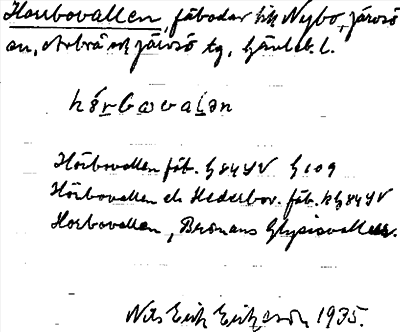 Horbovallen, fäbodar till Nybo, Järvsö
sn, Arbrå och Järvsö tg, Gävleb. l.
hórbωvalən
Hörbovallen fäb. G84SV G109
Hörbovallen el. Hederbov. fäb. k G84SV
Horbovallen, Bromans Glysisvallur.
Nils Erik Eriksson 1935.